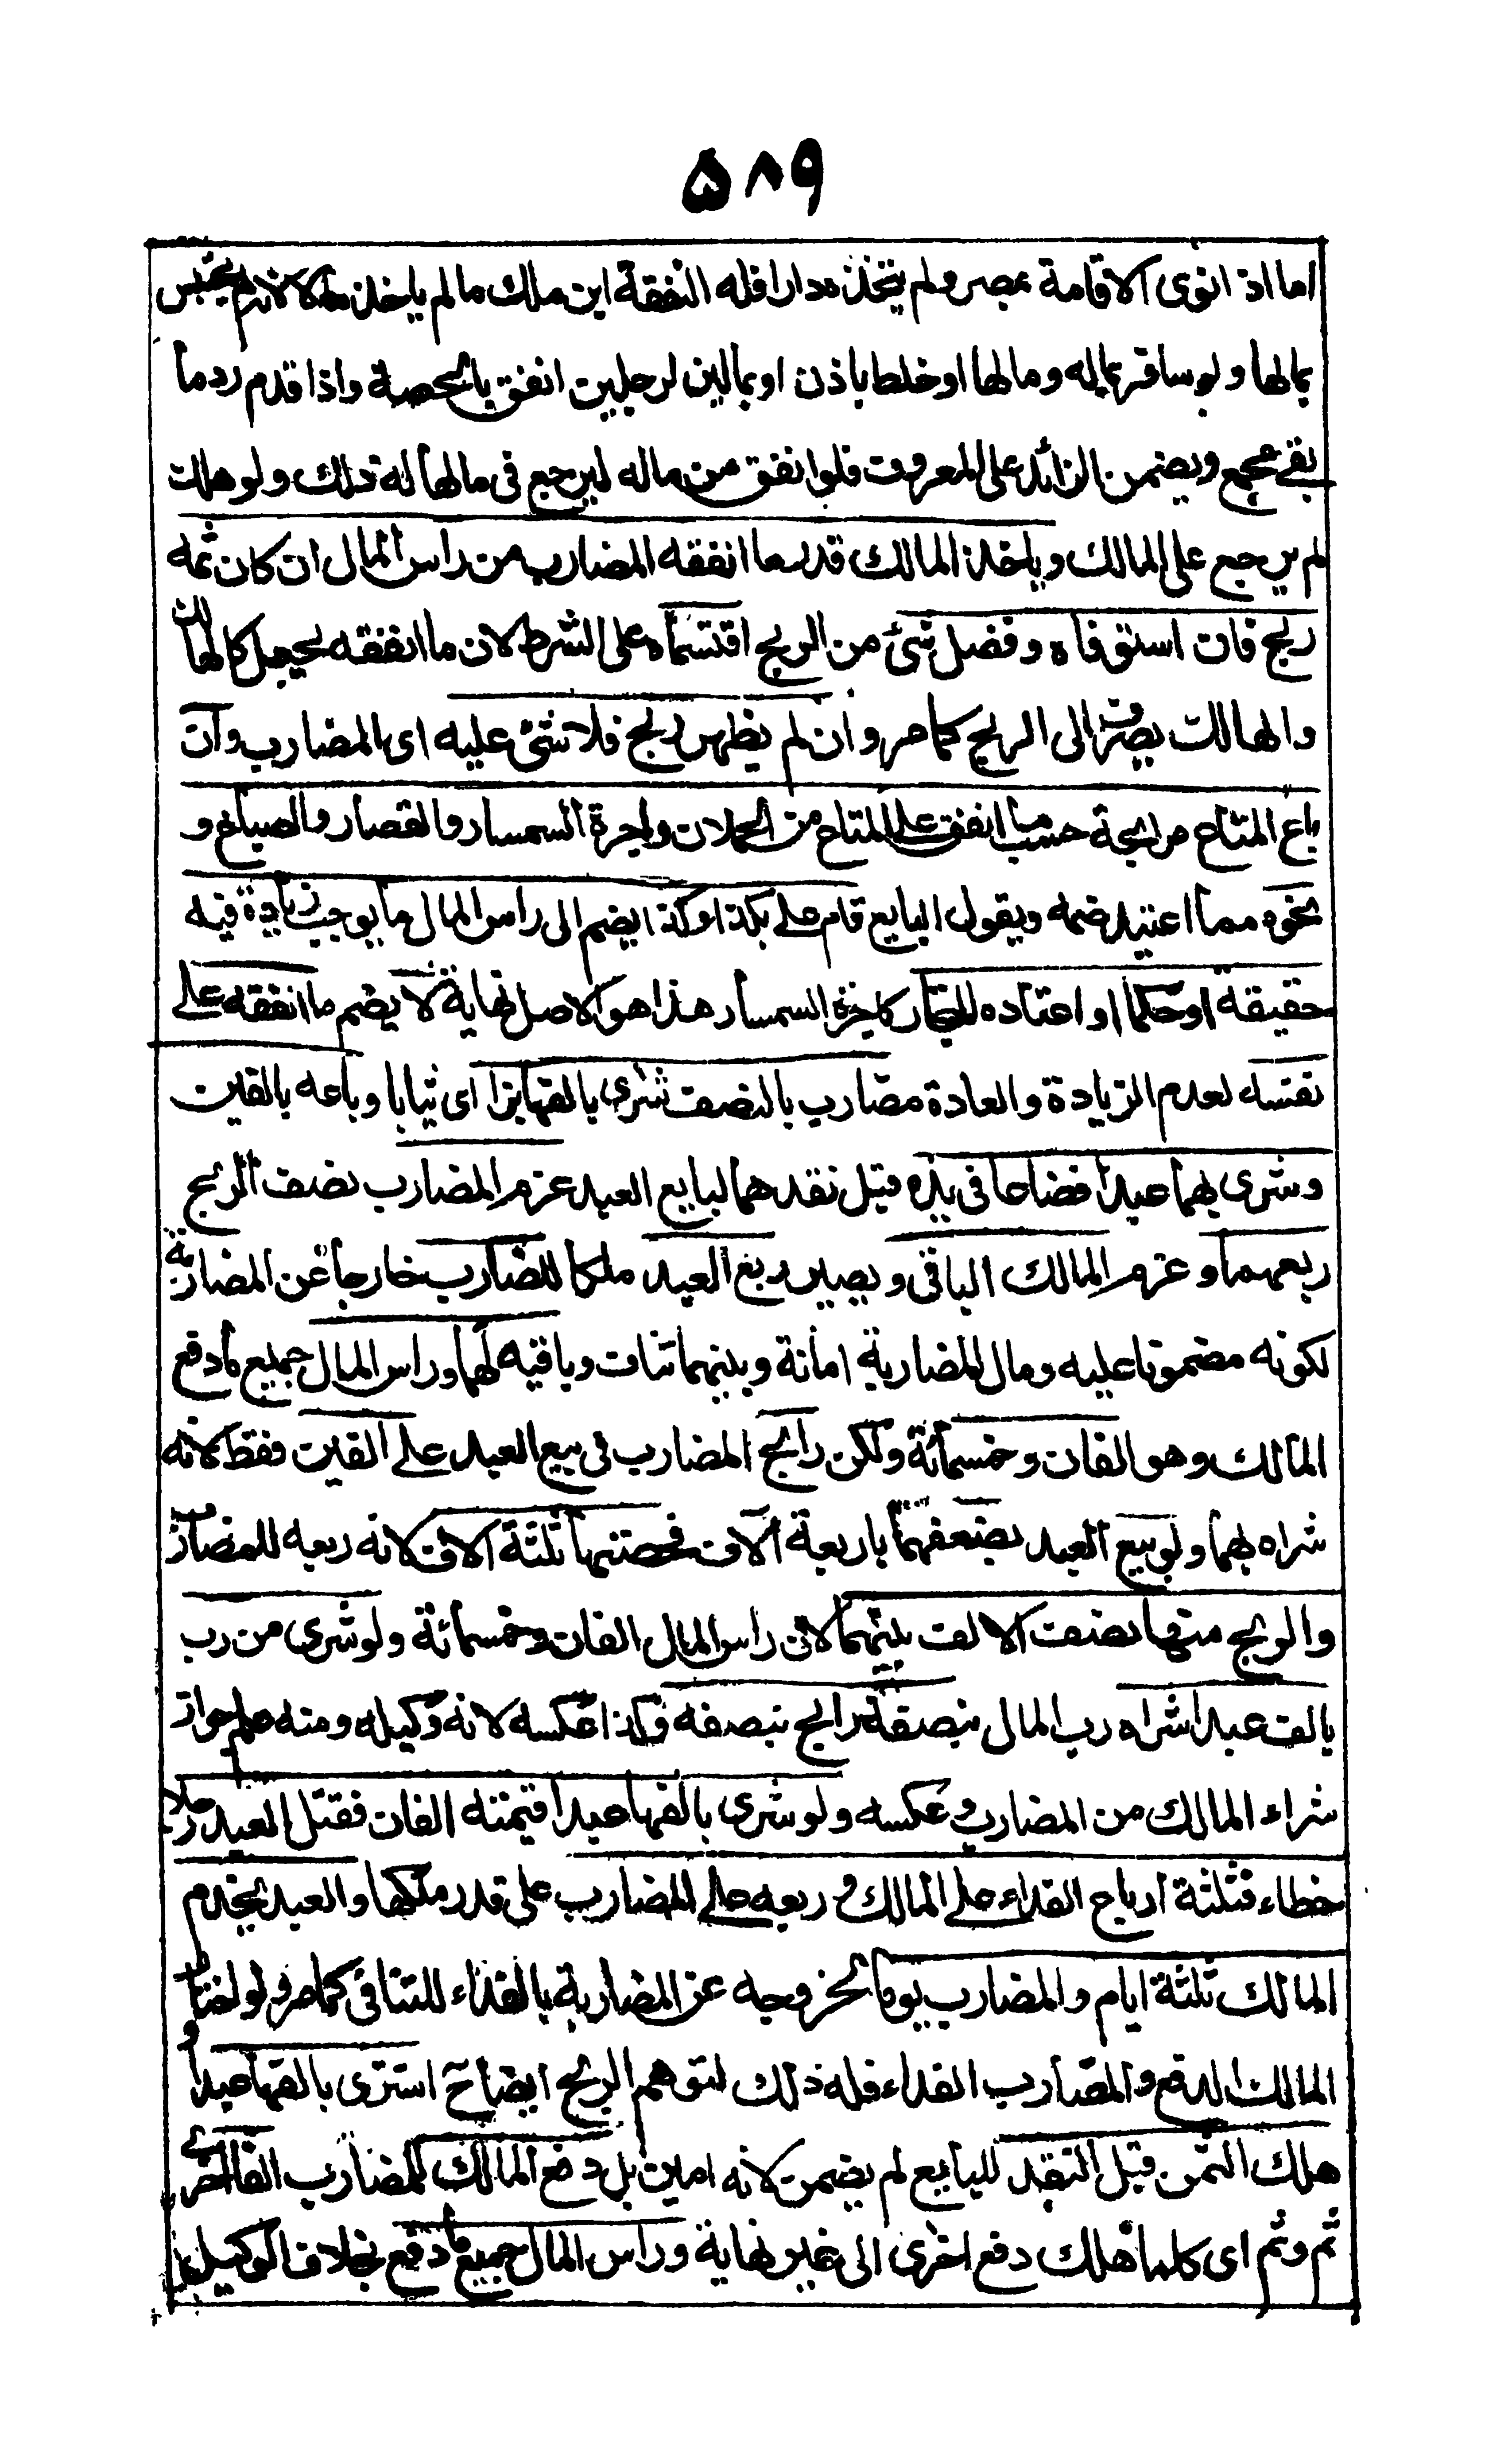 ۵۸۹
اما اذا نوى الاقامة بمصر ولم يتخذه دارا فله النفقة ابن ملك ما لم ياخذ مالا لانه لم يحتبس
بمالها ولو سافر بماله ومالها او خلط باذن او بمالين لرجلين انفق بالحصة واذا قدم رد ما
بقى مجمع ويضمن الزائد على المعروف فلو انفق من ماله ليرجع فى مالها له ذلك ولو هلك
لم يرجع على المالك وياخذ المالك قدر ما انفقه المضارب من راس المال ان كان ثمه
ربح فان استوفاه وفضل شئ من الربح اقتسماه على الشرط لان ما انفقه يجعل كالهالك
والهالك يصرف الى الربح كما مر وان لم يظهر ربح فلا شئ عليه اى المضارب وان
باع المتاع مرابحة حسب ما انفق على المتاع من الحملان واجرة السمسار والقصار والصباغ و
نحوه مما اعتيد ضمه ويقول البايع قام على بكذا وكذا يضم الى راس المال ما يوجب زيادة فيه
حقيقة او حكما او اعتاده التجار كاجرة السمسار هذا هو الاصل نهاية لا يضم ما انفقه على
نفسه لعدم الزيادة والعادة مضارب بالنصف شرى بالفها بزا اى ثيابا وباعه بالفين
وشرى بهما عبدا فضاعا فى يده قبل نقدهما لبايع العبد غرم المضارب نصف الربح
ربعهما و غرم المالك الباقى و يصير ربع العبد ملكا للمضارب خارجا عن المضاربة
لكونه مضمونا عليه ومال المضاربة امانة وبينهما تناف وباقيه لها وراس المال جميع ما دفع
المالك وهو الفان وخمسمائة ولكن رابح المضارب فى بيع العبد على الفين فقط لانه
شراه بهما ولو بيع العبد بضعفهما باربعة آلاف فحصتها ثلثة الاف لانه ربعه للمضارب
والربح منها نصف الالف بينهما لان راس المال الفان وخمسمائة ولو شرى من رب
بالف عبدا شراه رب المال بنصفه رابح بنصفه وكذا عكسه لانه وكيله ومنه علم جواز
شراء المالك من المضارب وعكسه ولو شرى بالفها عبدا قيمته الفان فقتل العبد رجلا
خطاء فثلثة ارباع الفداء على المالك وربعه على المضارب على قدر ملكهما والعبد يخدم
المالك ثلثة ايام والمضارب يوما لخروجه عن المضاربة بالفداء للتنافى كما مر ولو اختار
المالك الدفع والمضارب الفداء فله ذلك لتوهم الربح ايضاح اشترى بالفها عبدا و
هلك الثمن قبل النقد للبايع لم يضمن لانه امين بل دفع المالك للمضارب الفا اخرى
ثم وثم اى كلما هلك دفع اخرى الى غير نهاية وراس المال جميع ما دفع بخلاف الوكيل